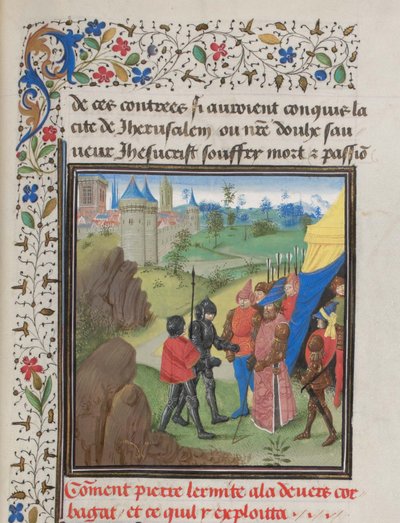 de ces contrees si auroient conquis la
cite de Jherusalem ou nr̃e doulx sau
ueur Jhesucrist souffry mort ⁊ passiõ
Cõment pierre lermite ala deuers cor
bagat, et ce quil y exploitta